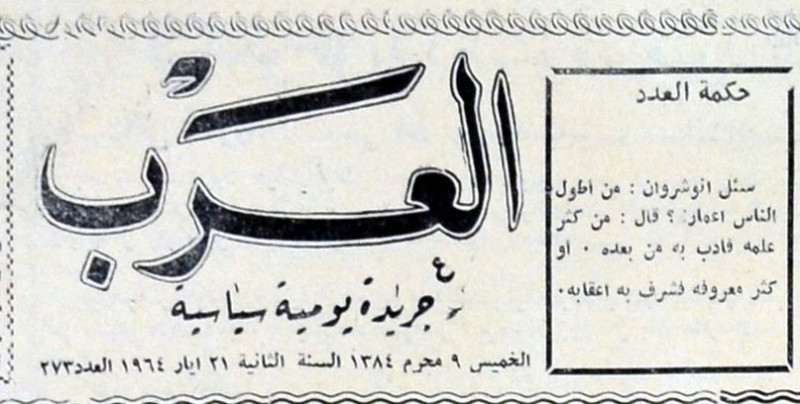 حكمة العدد
سئل انوشروان : من اطول
الناس اعمارا ؟ قال : من كثر
علمه فادب به من بعده ٠ او
كثر معروفه فشرف به اعقابه٠
العرب
جريدة يومية سياسية
الخميس ٩ محرم ١٣٨٤ السنة الثانية ٢١ ايار ١٩٦٤ العدد٢٧٣